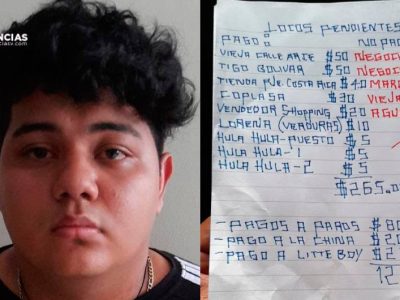 NCIAS
LOCOS PENDIENTES
PAGO: NO PAG
VIEJA CALLE ARCE $50 NEGOCI
TIGO BOLIVAR $50 NEGOC
TIENDA Pje. COSTA RICA $40 MAR
COPLASA $30 VIEJA
VENDEDOR SHOPPING $20 AGU
LORENA (VERDURAS) $10
HULA HULA-PUESTO $5
HULA HULA-1 $5
HULA HULA-2 $5
$265.0
-PAGOS A PAROS $80
-PAGO A LA CHINA $20
-PAGO A LITTE BOY $2
12